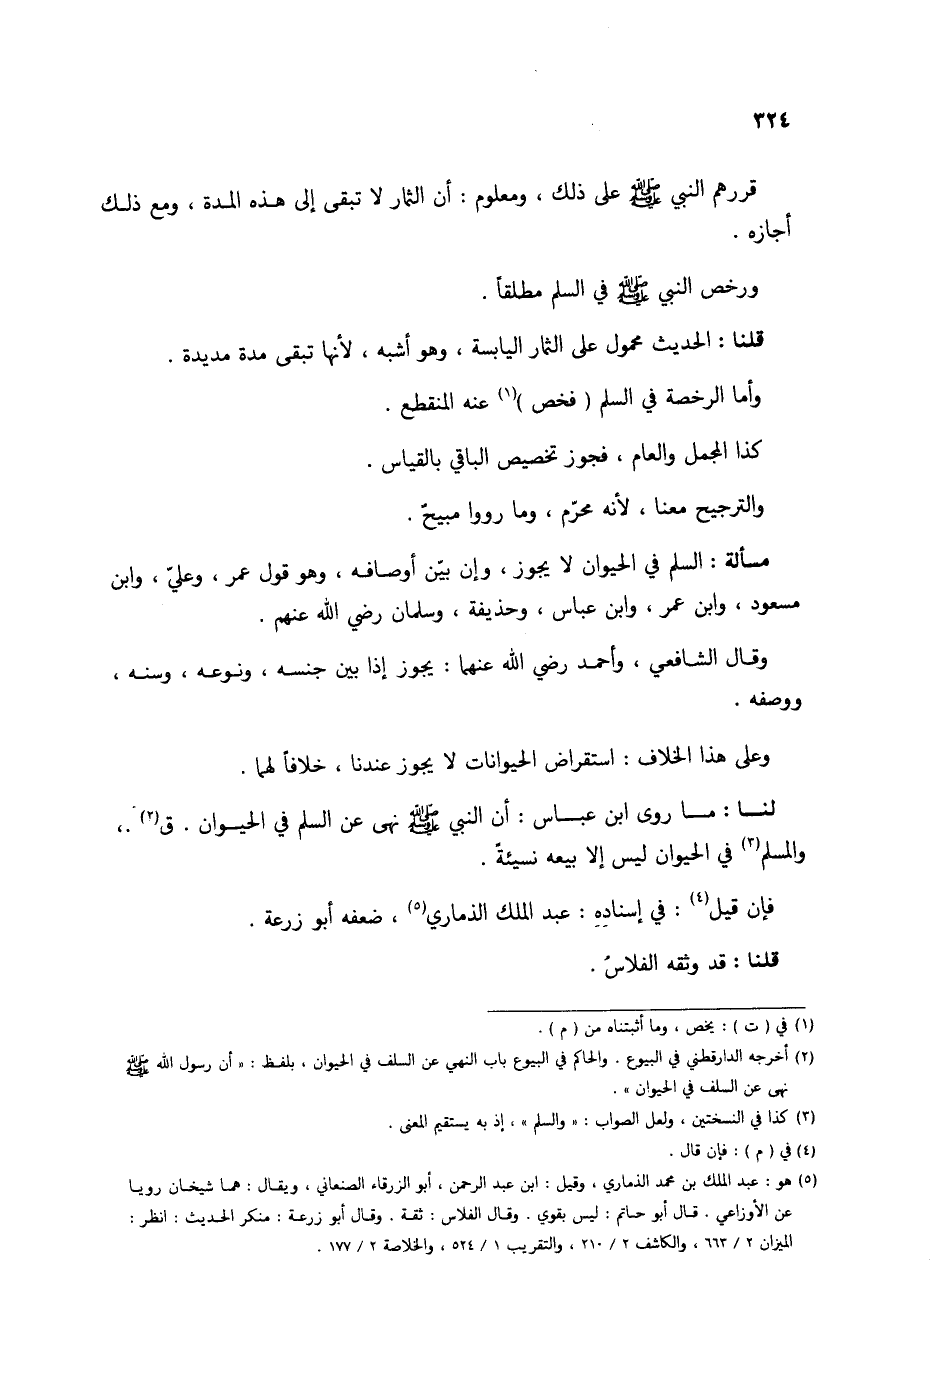 ٣٢٤
قررهم النبي ﷺ على ذلك ، ومعلوم : أن الثمار لا تبقى إلى هـذه المدة ، ومع ذلـك
أجازه .
ورخص النبي ﷺ في السلم مطلقاً .
قلنا : الحديث محمول على الثمار اليابسة ، وهو أشبه ، لأنها تبقى مدة مديدة .
وأما الرخصة في السلم ( فخص )(١) عنه المنقطع .
كذا المجمل والعام ، فجوز تخصيص الباقي بالقياس .
والترجيح معنا ، لأنه محرّم ، وما رووا مبيحٌ .
مسألة : السلم في الحيوان لا يجوز ، وإن بيّن أوصافـه ، وهو قول عمر ، وعليّ ، وابن
مسعود ، وابن عمر ، وابن عباس ، وحذيفة ، وسلمان رضي الله عنهم .
وقـال الشـافعي ، وأحمـد رضي الله عنهما : يجوز إذا بين جنسـه ، ونـوعـه ، وسنـه ،
ووصفه .
وعلى هذا الخلاف : استقراض الحيوانات لا يجوز عندنا ، خلافاً لهما .
لنــا : مــا روى ابن عبــاس : أن النبي ﷺ نهى عن السلم في الحيـوان . ق(٢) .،
والمسلم(٣) في الحيوان ليس إلا بيعه نسيئةً .
فإن قيل(٤) : في إسناده : عبد الملك الذماري(٥) ، ضعفه أبو زرعة .
قلنا : قد وثقه الفلاسُ .
(١) في ( ت ) : يخص ، وما أثبتناه من ( م ) .
(٢) أخرجه الدارقطني في البيوع . والحاكم في البيوع باب النهي عن السلف في الحيوان ، بلفـظ : « أن رسول الله ﷺ
نهى عن السلف في الحيوان » .
(٣) كذا في النسختين ، ولعل الصواب : « والسلم » ، إذ به يستقيم المعنى .
(٤) في ( م ) : فإن قال .
(٥) هو : عبد الملك بن محمد الذماري ، وقيل : ابن عبد الرحمن ، أبو الزرقاء الصنعاني ، ويقـال : همـا شيخـان رويـا
عن الأوزاعي . قـال أبو حـاتم : ليس بقوي . وقـال الفلاس : ثقـة . وقـال أبو زرعـة : منكر الحـديث : انظر :
الميزان ٢ / ٦٦٣ ، والكاشف ٢ / ٢١٠ ، والتقريب ١ / ٥٢٤ ، والخلاصة ٢ / ١٧٧ .